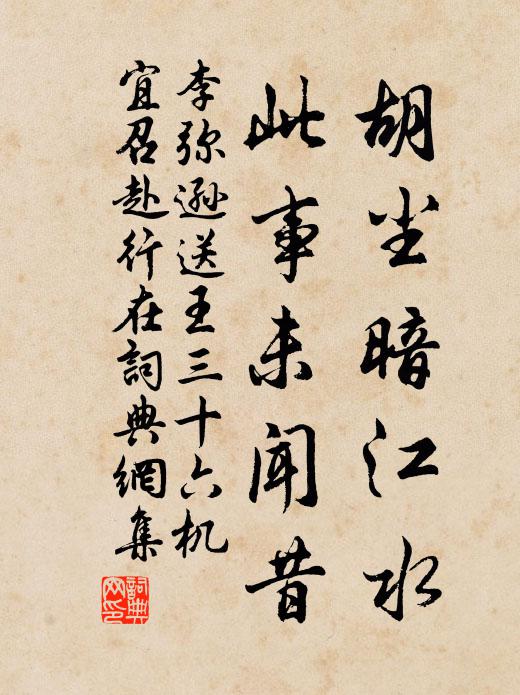 胡尘暗江水
此事未闻昔
李弥逊送王三十六机
宜召赴行在詞典網集
詞典网印